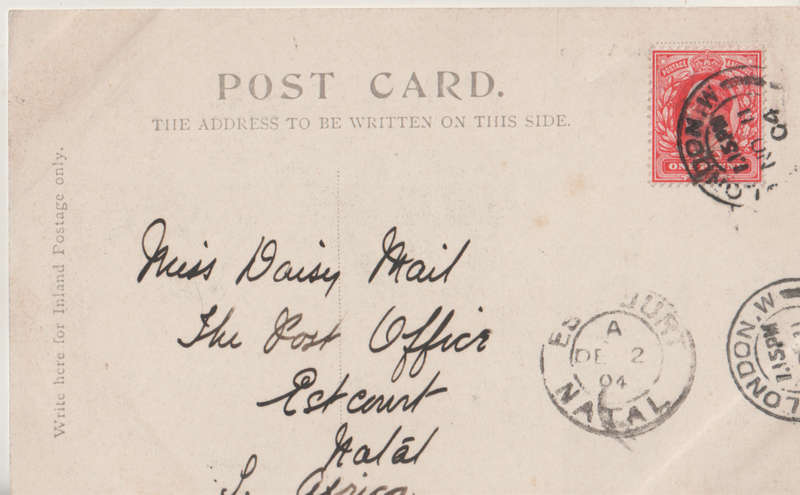 POST CARD.
THE ADDRESS TO BE WRITTEN ON THIS SIDE.
Write here for Inland Postage only.
POSTAGE
ONE PENNY
LONDON W
1.15PM
NO 11
04
Miss Daisy Mail
The Post Office
Estcourt
Natal
S. Africa
ESTCOURT
A
DE 2
04
NATAL
LONDON W.
1.15PM
11